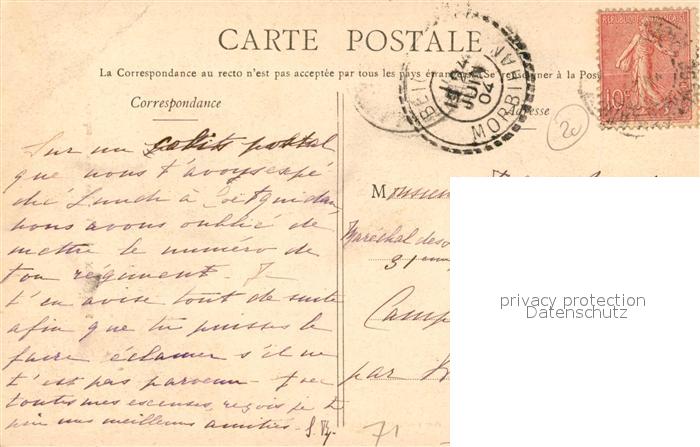 CARTE POSTALE
La Correspondance au recto n'est pas acceptée par tous les pays étrangers (Se renseigner à la Poste
Correspondance
Adresse
REPUBLIQUE FRANÇAISE
10
JUIN
04
MORBIHAN
20
Sur un colis postal
que nous t'avons expé
dié Lundi à Coëtquidan
nous avons oublié de
mettre le numéro de
ton régiment. Je
t'en avise tout de suite
afin que tu puisses le
faire éclamer s'il ne
t'est pas parvenu. Avec
toutes mes excuses, reçois je te
prie mes meilleures amitiés.
Monsieur
Maréchal des
31
Camp
par
71
privacy protection
Datenschutz